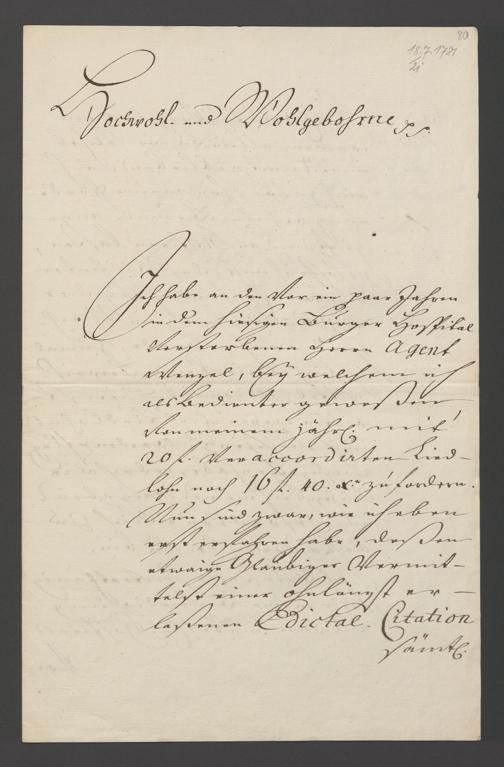 80
18.7.1781
Hochwohl- und Wohlgebohrne
Ich habe an den vor ein paar Jahren
in dem hiesigen Bürger Hospital
verstorbenen Herrn Agent
Wenzel, bey welchem ich
als Bedienter gewesen
von meinem jährl. mit
20 f. veraccordirten Lied-
lohn noch 16 f. 40. xr zu fordern.
Nun sind zwar, wie ich eben
erst erfahren habe, deßen
etwaige Glaubiger vermit-
telst einer ohnlängst er-
laßenen Edictal- Citation
sämtl.